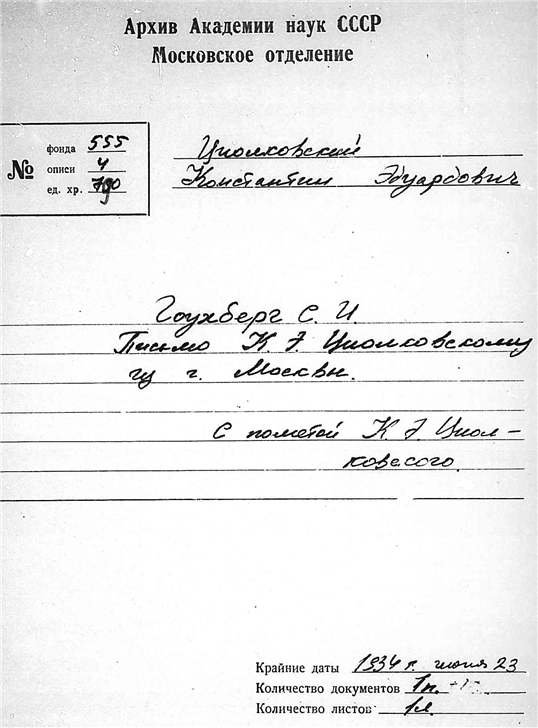 Архив Академии наук СССР
Московское отделение
№
фонда 555
описи 4
ед. хр.
Циолковский
Константин Эдуардович
С. И.
Письмо К. Э. Циолковскому
из г. Москвы.
С пометой К Э Циол-
ковского.
Крайние даты 1934 г. июня 23
Количество документов 1п.
Количество листов 1л